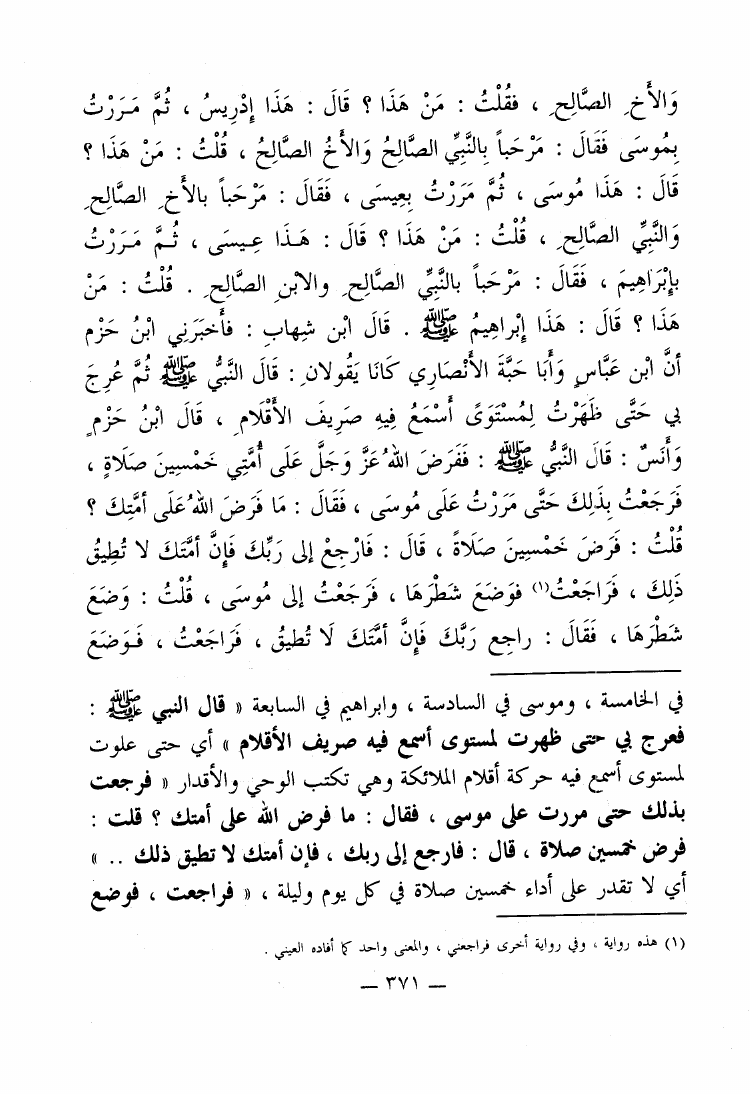 وَالأَخِ الصَّالِحِ ، فَقُلْتُ : مَنْ هَذَا ؟ قَالَ : هَذَا إِدْرِيسُ ، ثُمَّ مَـرَرْتُ
بِمُوسَى فَقَالَ : مَرْحَباً بِالنَّبِيِّ الصَّالِحُ وَالأَخُ الصَّالِحُ ، قُلْتُ : مَنْ هَذَا ؟
قَالَ : هَذَا مُوسَى ، ثُمَّ مَرَرْتُ بِعِيسَى ، فَقَالَ : مَرْحَباً بالأَخِ الصَّالِحِ
وَالنَّبِيِّ الصَّالِحِ ، قُلْتُ : مَنْ هَذَا ؟ قَالَ : هَـذَا عِـيسَى ، ثُـمَّ مَـرَرْتُ
بِإِبْرَاهِيمَ ، فَقَالَ : مَرْحَباً بالنَّبِيِّ الصَّالِحِ والابْنِ الصَّالِحِ . قُلْتُ : مَنْ
هَذَا ؟ قَالَ : هَذَا إِبْراهِيمُ ﷺ . قَالَ ابْن شِهابٍ : فأَخْبَرَنِي ابْنُ حَزْم
أنَّ ابْن عَبَّاسٍ وَأَبَا حَبَّةَ الأَنْصَارِي كَانَا يَقُولانِ : قَالَ النَّبِيُّ ﷺ ثُمَّ عُرِجَ
بي حَتَّى ظَهَرْتُ لِمُسْتَوَىً أَسْمَعُ فِيهِ صَرِيفَ الأَقْلَامِ ، قَالَ ابْنُ حَزْمٍ
وَأَنَسٌ : قَالَ النَّبِيُّ ﷺ : فَفَرَضَ اللهُ عَزَّ وَجَلَّ عَلَى أُمَّتِي خَمْسِينَ صَلَاةٍ ،
فَرَجَعْتُ بِذَلِكَ حَتَّى مَرَرْتُ عَلَى مُوسَى ، فَقَالَ : مَا فَرَضَ اللهُ عَلَى أمَّتِكَ ؟
قُلْتُ : فَرَضَ خَمْسِينَ صَلَاةً ، قَالَ : فَارْجِعْ إلى رَبِّكَ فَإِنَّ أمَّتَكَ لا تُطِيقُ
ذَلِكَ ، فَرَاجَعْتُ(١) فوَضَعَ شَطْرَهَا ، فَرَجَعْتُ إلى مُوسَى ، قُلْتُ : وَضَعَ
شَطْرَهَا ، فَقَالَ : راجِع رَبَّكَ فَإِنَّ أمَّتَكَ لَا تُطِيقُ ، فَرَاجَعْتُ ، فَـوَضَعَ
في الخامسة ، وموسى في السادسة ، وابراهيم في السابعة « قال النبي ﷺ :
فعرج بي حتى ظهرت لمستوى أسمع فيه صريف الأقلام » أي حتى علوت
لمستوى أسمع فيه حركة أقلام الملائكة وهي تكتب الوحي والأقدار « فرجعت
بذلك حتى مررت على موسى ، فقال : ما فرض الله على أمتك ؟ قلت :
فرض خمسين صلاة ، قال : فارجع إلى ربك ، فإن أمتك لا تطيق ذلك .. »
أي لا تقدر على أداء خمسين صلاة في كل يوم وليلة ، « فراجعت ، فوضع
(١) هذه رواية ، وفي رواية أخرى فراجعني ، والمعنى واحد كما أفاده العيني .
— ٣٧١ —